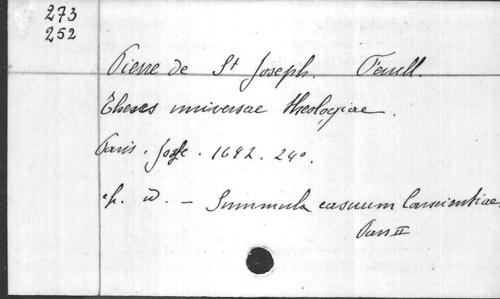 273
252
Pierre de St Joseph. Feuill.
Theses universae theologiae.
Paris. Josse. 1642. 24o.
A. w. – Summula casuum Conscientiae
Pars II